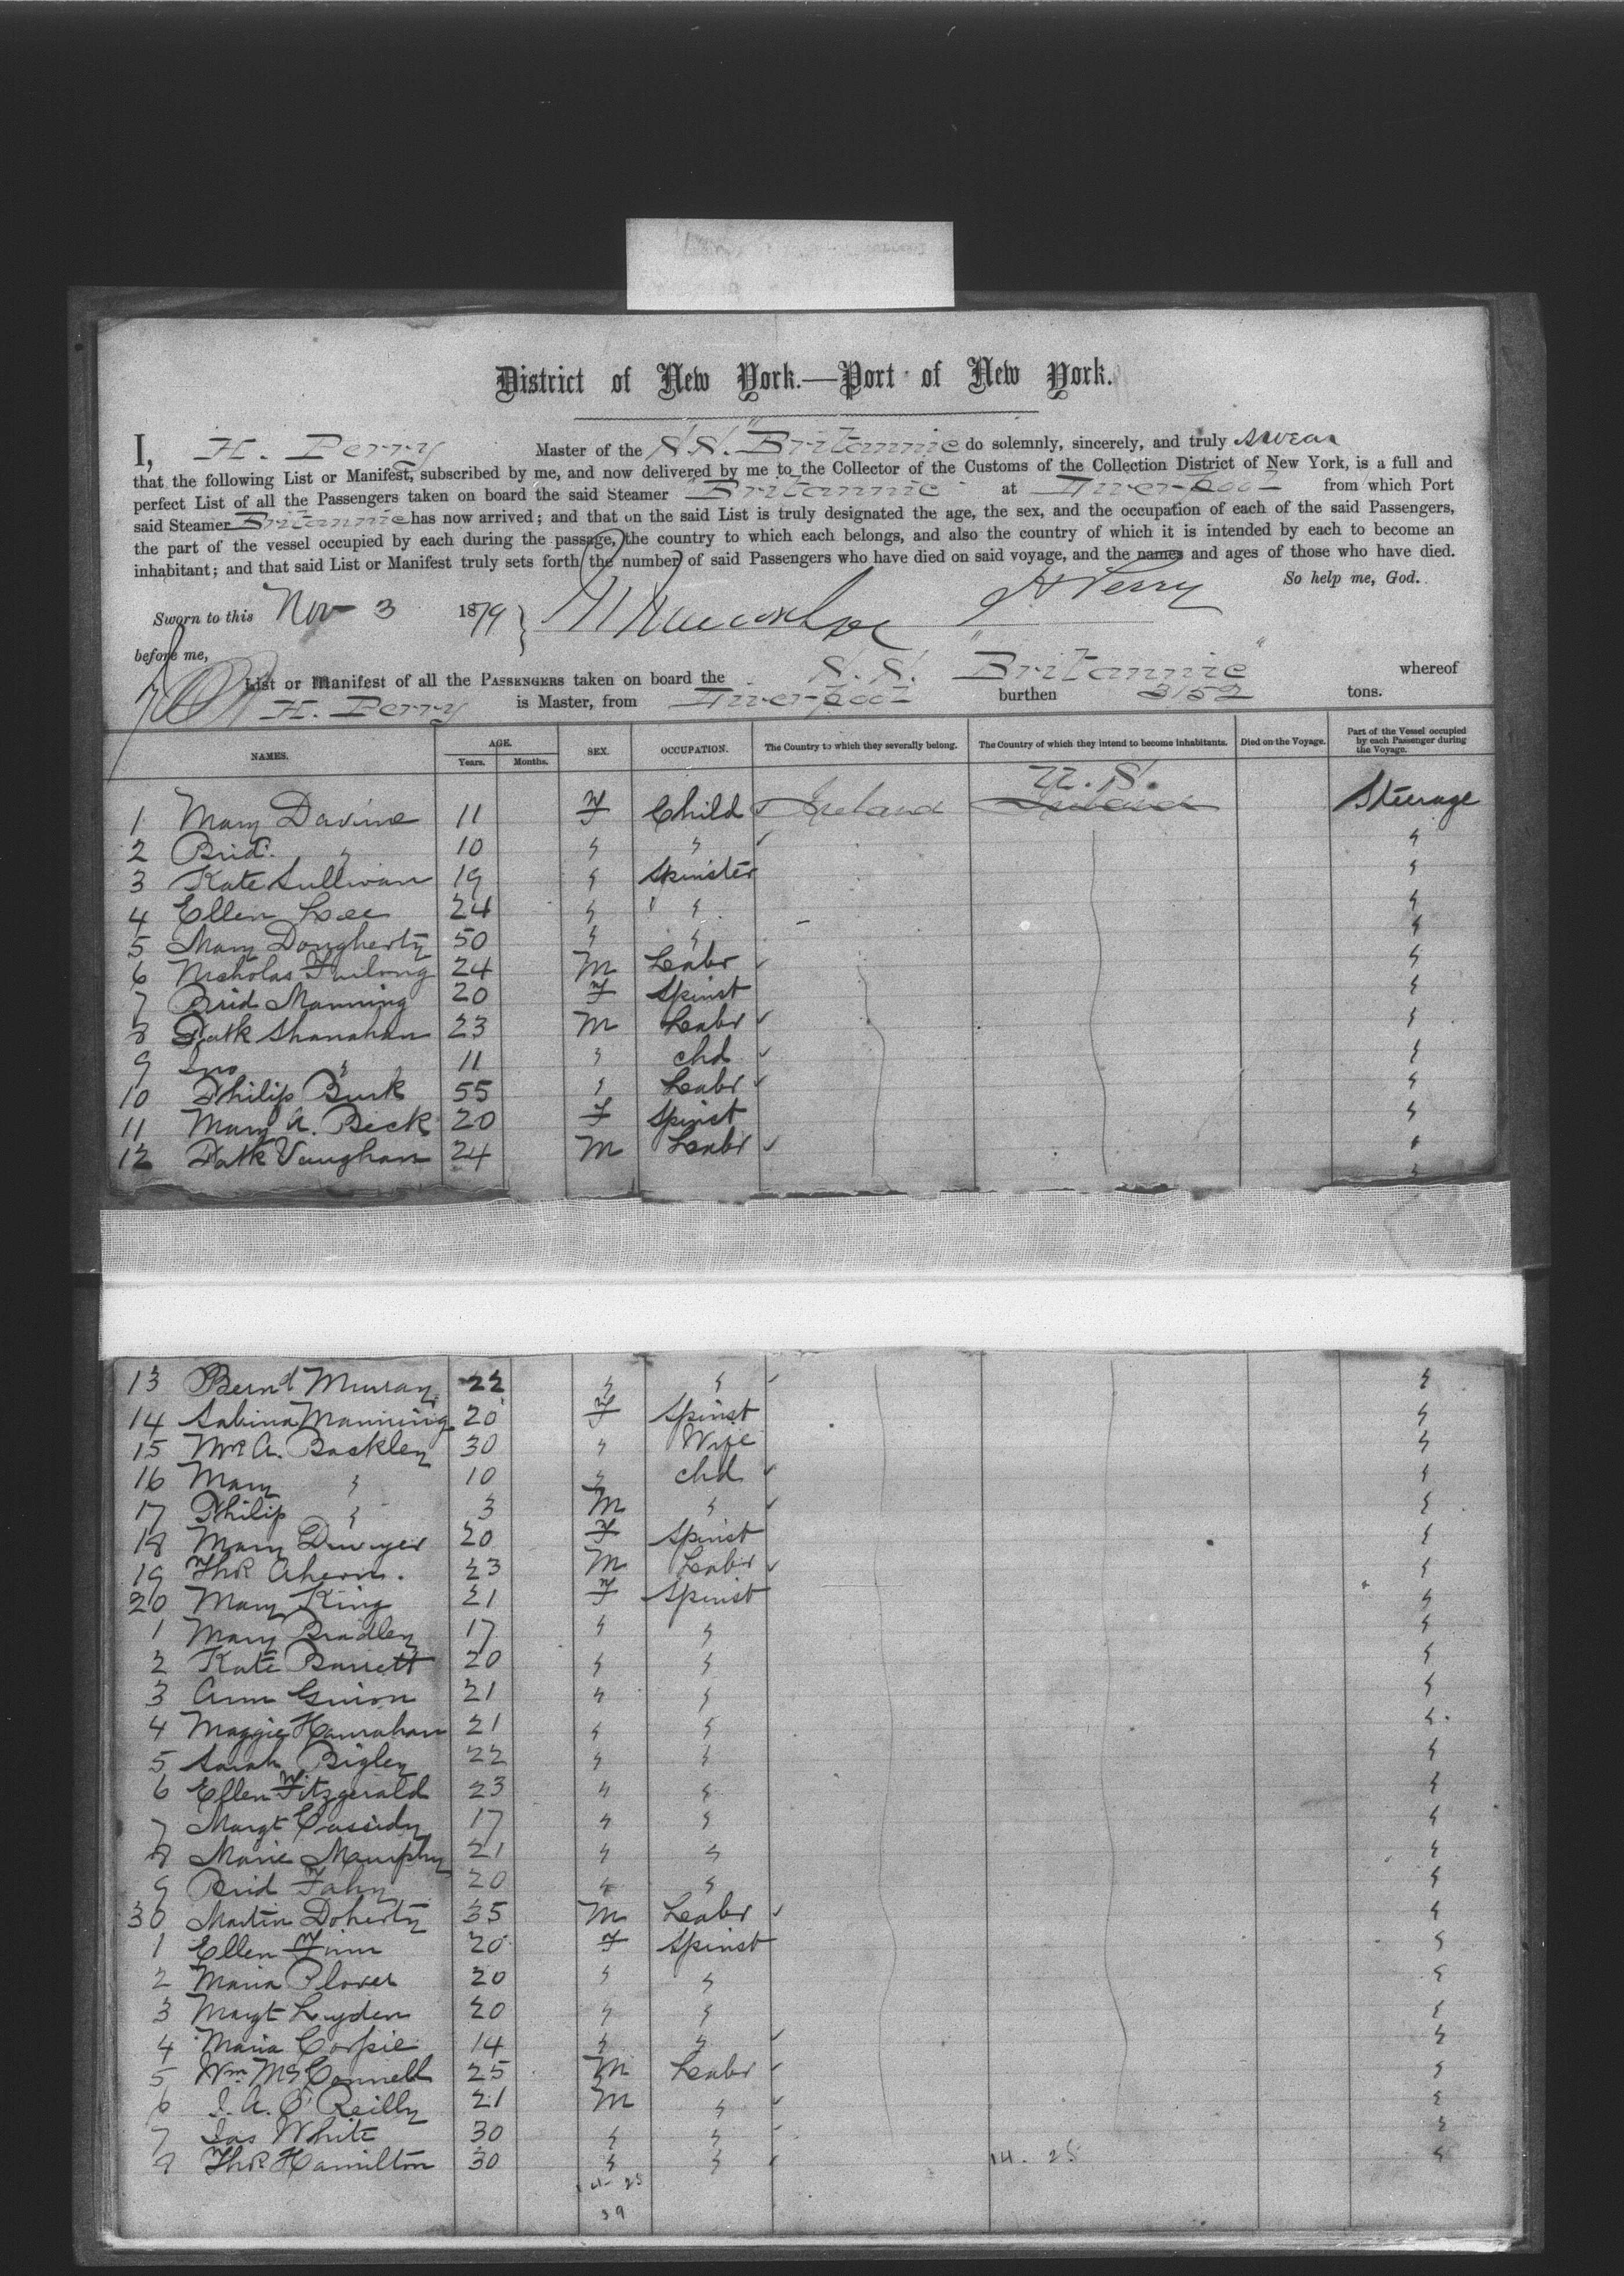 District of New York.—Port of New York.
I, H. Perry Master of the S.S. "Britannic" do solemnly, sincerely, and truly swear
that the following List or Manifest, subscribed by me, and now delivered by me to the Collector of the Customs of the Collection District of New York, is a full and
perfect List of all the Passengers taken on board the said Steamer "Britannic" at Liverpool from which Port
said Steamer Britannic has now arrived; and that on the said List is truly designated the age, the sex, and the occupation of each of the said Passengers,
the part of the vessel occupied by each during the passage, the country to which each belongs, and also the country of which it is intended by each to become an
inhabitant; and that said List or Manifest truly sets forth the number of said Passengers who have died on said voyage, and the names and ages of those who have died.
So help me, God.
Sworn to this Nov 3 1879 H Perry
before me,
List or Manifest of all the PASSENGERS taken on board the S.S. "Britannic" whereof
H. Perry is Master, from Liverpool burthen 3152 tons.
NAMES. AGE. Years. Months. SEX. OCCUPATION. The Country to which they severally belong. The Country of which they intend to become inhabitants. Died on the Voyage. Part of the Vessel occupied by each Passenger during the Voyage.
U.S.
1 Mary Davine 11 F Child Ireland Ireland Steerage
2 Brid. " 10 " " "
3 Kate Sullivan 19 " Spinster "
4 Ellen Lee 24 " " "
5 Mary Dougherty 50 " " "
6 Nicholas Furlong 24 M Labr "
7 Brid Manning 20 F Spinst "
8 Patk Shanahan 23 M Labr "
9 Jno " 11 " chd "
10 Philip Burk 55 " Labr "
11 Mary A. Beck 20 F Spinst "
12 Patk Vaughan 24 M Labr "
13 Bernd Murray 22 " " "
14 Sabina Manning 20 F Spinst "
15 Mrs A. Backley 30 " Wife "
16 Mary " 10 " chd "
17 Philip " 3 M " "
18 Mary Dwyer 20 F Spinst "
19 Thos Ahern. 23 M Labr "
20 Mary King 21 F Spinst "
1 Mary Bradley 17 " " "
2 Kate Barrett 20 " " "
3 Ann Guion 21 " " "
4 Maggie Hanrahan 21 " " "
5 Sarah Bigley 22 " " "
6 Ellen Fitzgerald 23 " " "
7 Margt Cassidy 17 " " "
8 Marie Murphy 21 " " "
9 Brid Fahy 20 " " "
30 Martin Doherty 35 M Labr "
1 Ellen Finn 20 F Spinst "
2 Maria Plover 20 " " "
3 Margt Lyden 20 " " "
4 Maria Corpie 14 " " "
5 Wm McConnell 25 M Labr "
6 J. A. O'Reilly 21 M " "
7 Jas White 30 " " "
8 Thos Hamilton 30 " " 14. 25 "
14- 25
39